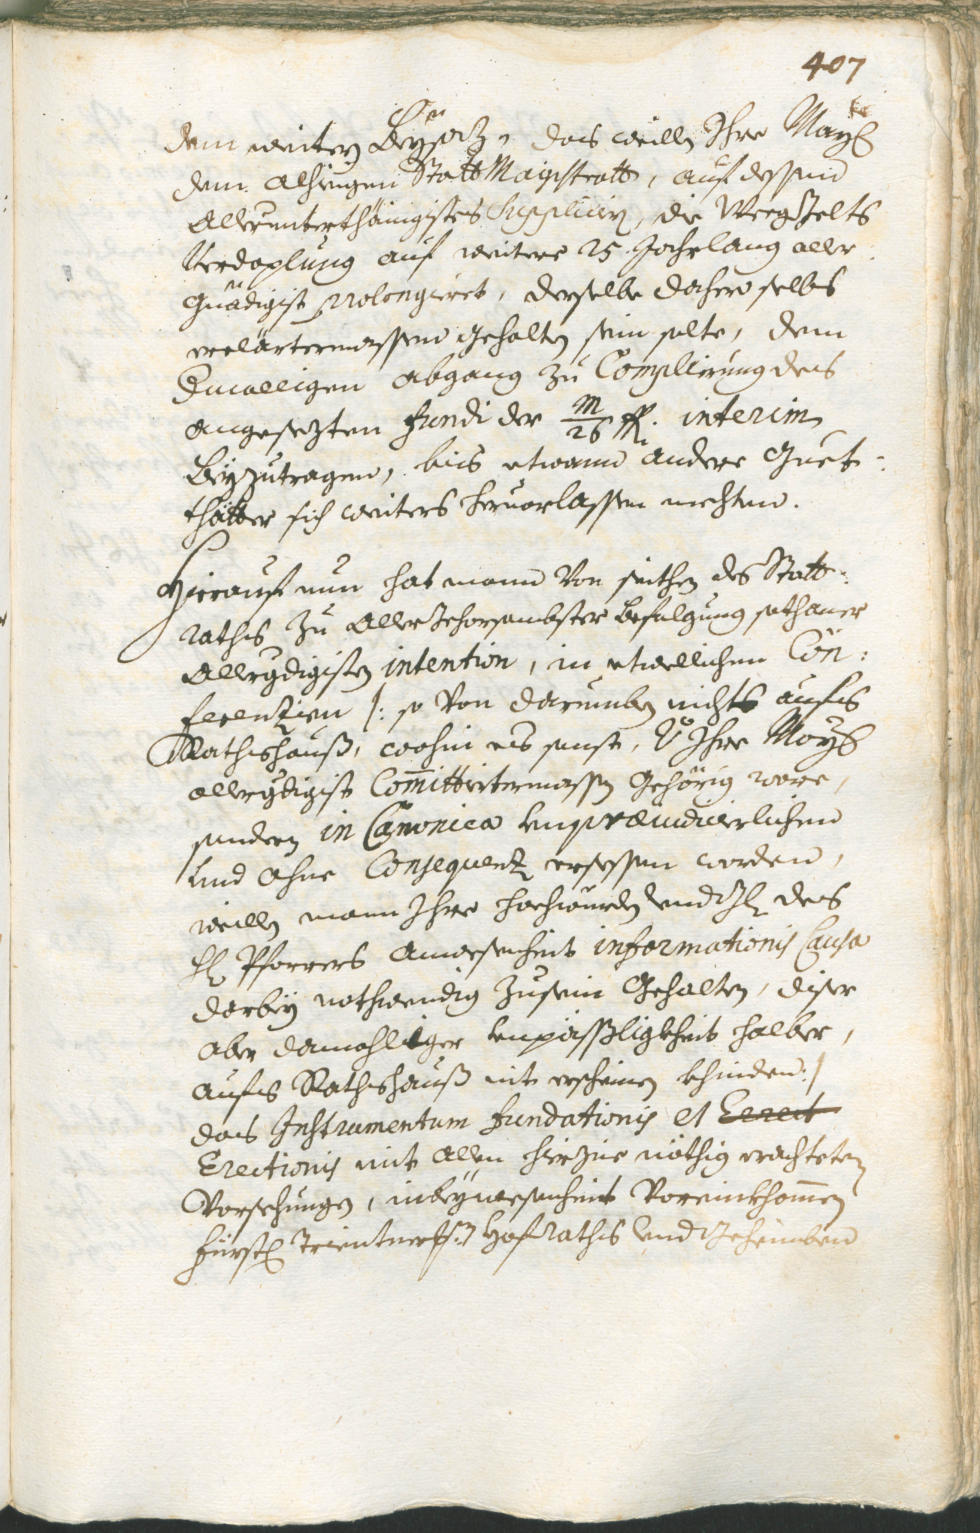 407
dem weitern Beysatz, das weillen Ihre Mays:
dem alhiesigen Statt Magistratt, auf dessen
Allerunterthänigistes Suppliciren, die Weegzelts
Verdoplung auf weitere 25 Jahr lang aller
gnädigist prolongieret, derselbe dahero selbs
erclärtermassen gehalten sein solte, dem
Abgang zu Complierung des
angesezten fundi der m/26 fl. interim
Beyzutragen, bis etwann andere Guet-
thätter sich weiters hervorlassen mechten.
Hierauf nun hat mann von seithen des Statt-
raths zu Allergehorsambster befolgung sothaner
Allergdigisten intention, in etwellichen Con:
ferenzien /: so von darumben nichts aufs
Rathshauß, wohin es sonst, v Ihre Mays:
allergdigist Committiertermassen gehörig ware,
sondern in Canonica unpraeiudicierlichen
und ohne Consequenz ersessen worden,
weillen mann Ihro hochwürden und des
H: Pfarrers Anwesenheit informationis Causa
darbey nothwendig zusein gehalten, diser
aber damahliger unpässligkheit halber,
aufs Rathshauß nit erscheinen khinden:/
das Instrumentum fundationis et Erect
Erectionis mit allen hierzue nöthig erachteten
Vorsehungen, in beywesenheit Voreinkhommen
fürstl: Trientnerischen Hof Raths und Geheimben